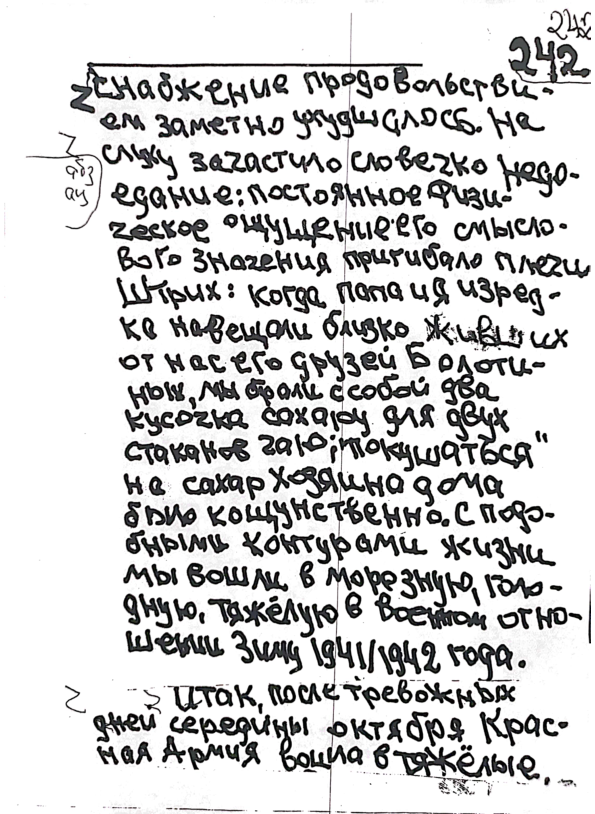 242
242
Снабжение продовольстви-
ем заметно ухудшалось. На
слуху зачастило словечко недо-
абз
ац
едание: постоянное физи-
ческое ощущение его смысло-
вого значения пригибало плечи
Штрих: когда папа и я изред-
ка навещали близко живших
от нас его друзей Болоти-
ных, мы брали с собой два
кусочка сахару для двух
стаканов чаю; "покушаться"
на сахар хозяина дома
было кощунственно. С подо-
бными контурами жизни
мы вошли в морезную, голо-
дную, тяжёлую в военном отно-
шении зиму 1941/1942 года.
Итак, после тревожных
дней середины октября Крас-
ная Армия вошла в тяжёлые,